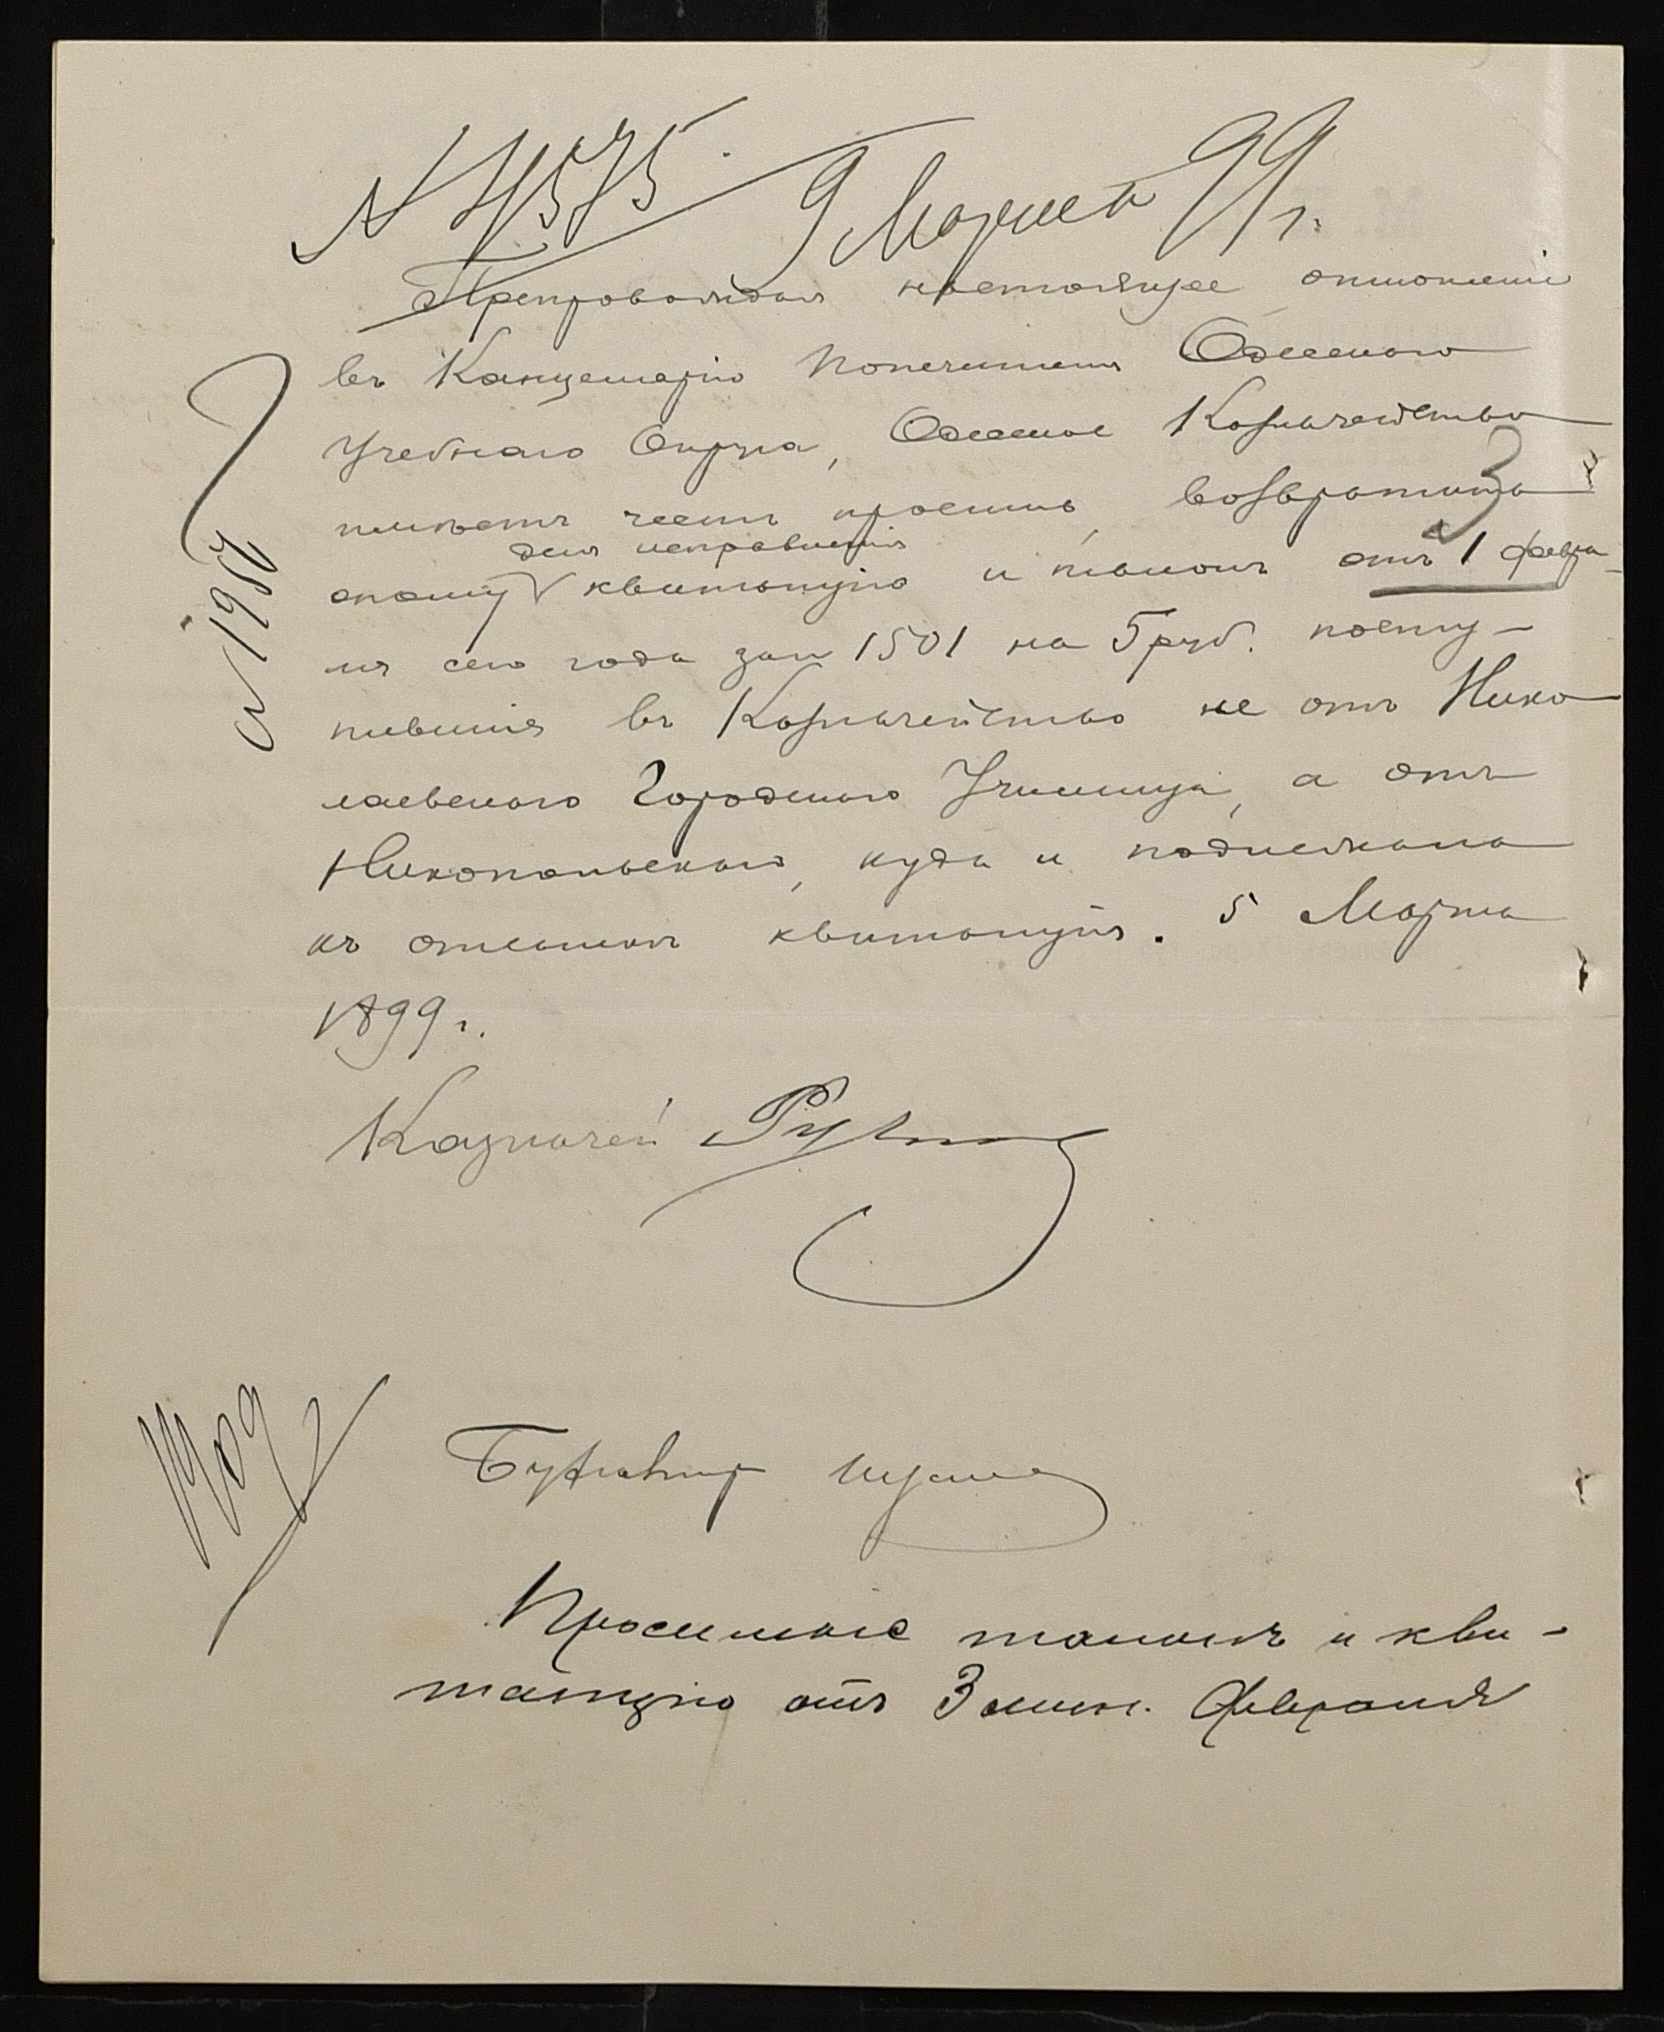 № 4575 9 Марта 99 г.
Препровождая настоящее отношеніе
въ Канцелярію Попечителя Одесскаго
Учебнаго Округа, Одесское Казначейство
имѣетъ честь просить возвратить
3
для исправленія
оному квитанцію и талонъ отъ 1 февра-
ля сего года за № 1501 на 5 руб. посту-
пившія въ Казначейство не отъ Нико
лаевскаго Городского Училища, а отъ
Никопольскаго, куда и подлежала
къ отсылкѣ квитанція. 5 Марта
1899 г.
№ 1952
Казначей
Бухгалтер
Просимые талонъ и кви-
танцію отъ 3 мин. Февраля